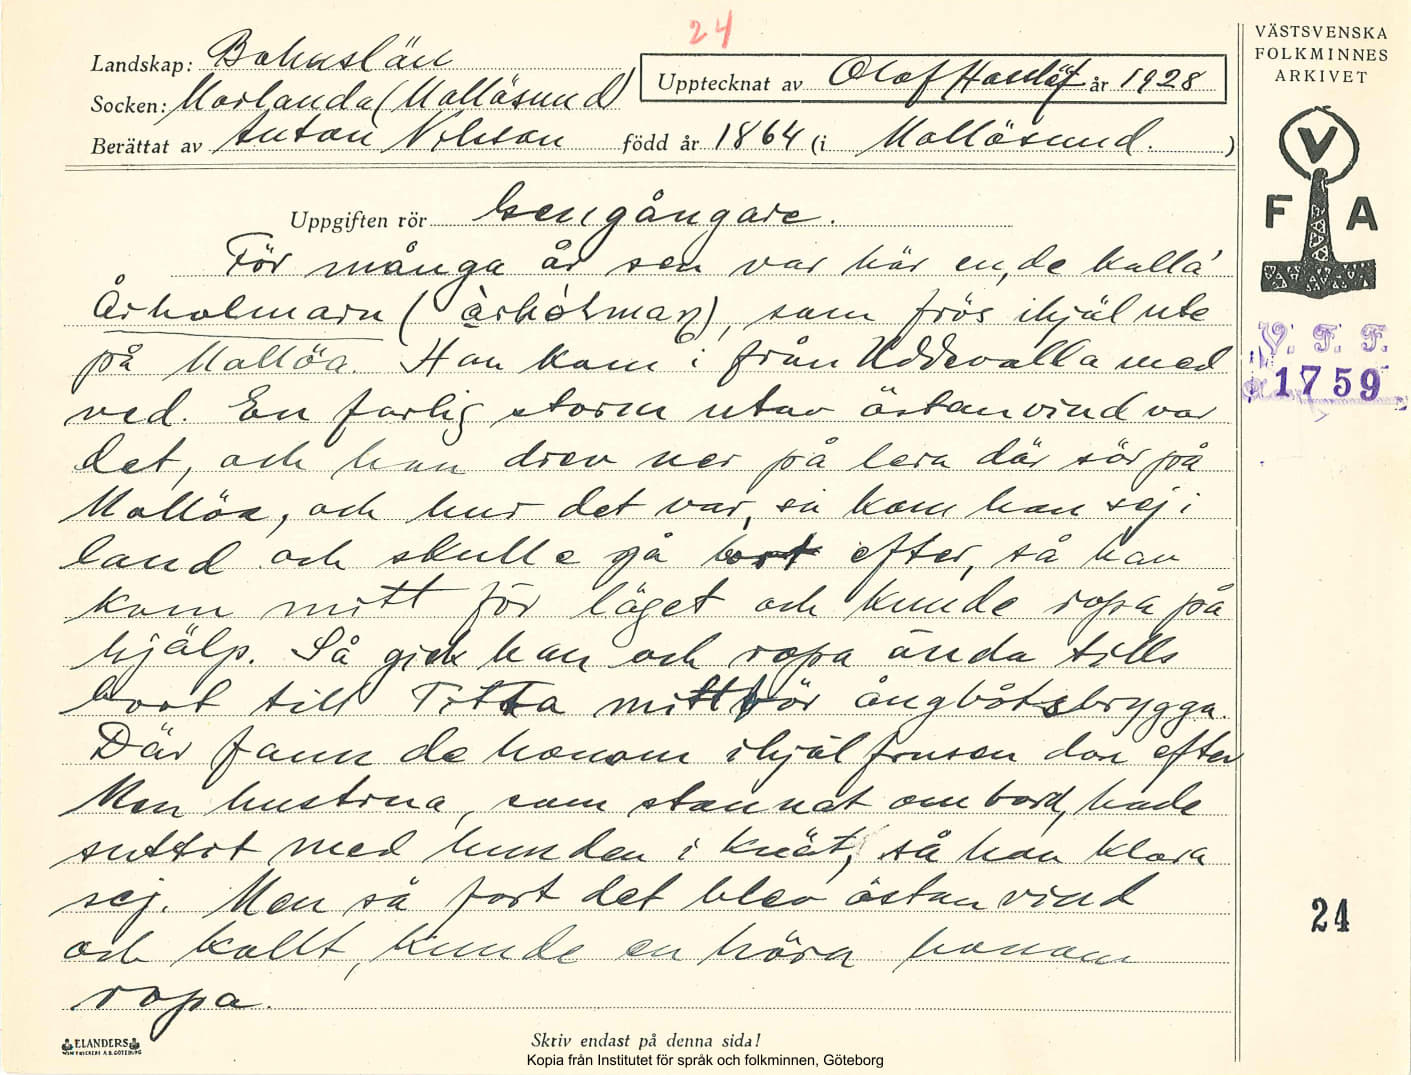 24
Landskap: Bohuslän
Socken: Morlanda (Mollösund)
Upptecknat av Olof Hasslöf år 1928
Berättat av Anton Nilsson född år 1864 (i Mollösund. )
Uppgiften rör Gengångare.
För många år sen var här en, de kalla'
Årholmarn ( ), som frös ihjäl ute
på Mollöa. Han kom i från Uddevalla med
ved. En farlig storm utav östanvind var
det, och han drev ner på lera där sör på
Mollöa, och hur det var, så kom han sej i
land och skulle gå bort efter, så han
kom mitt för läget och kunde ropa på
hjälp. Så gick han och ropa ända tills
bort till Titta mitt för ångbåtsbrygga.
Där fann de honom ihjälfrusen don efter
Men hustrua, som stannat ombord, hade
suttit med hunden i knät, så hon klara
sej. Men så fort det blev östanvind
och kallt, kunde en höra honom
ropa.
ELANDERS
Skriv endast på denna sida!
Kopia från Institutet för språk och folkminnen, Göteborg
VÄSTSVENSKA
FOLKMINNES
ARKIVET
V
F A
V. F. F.
1759
24